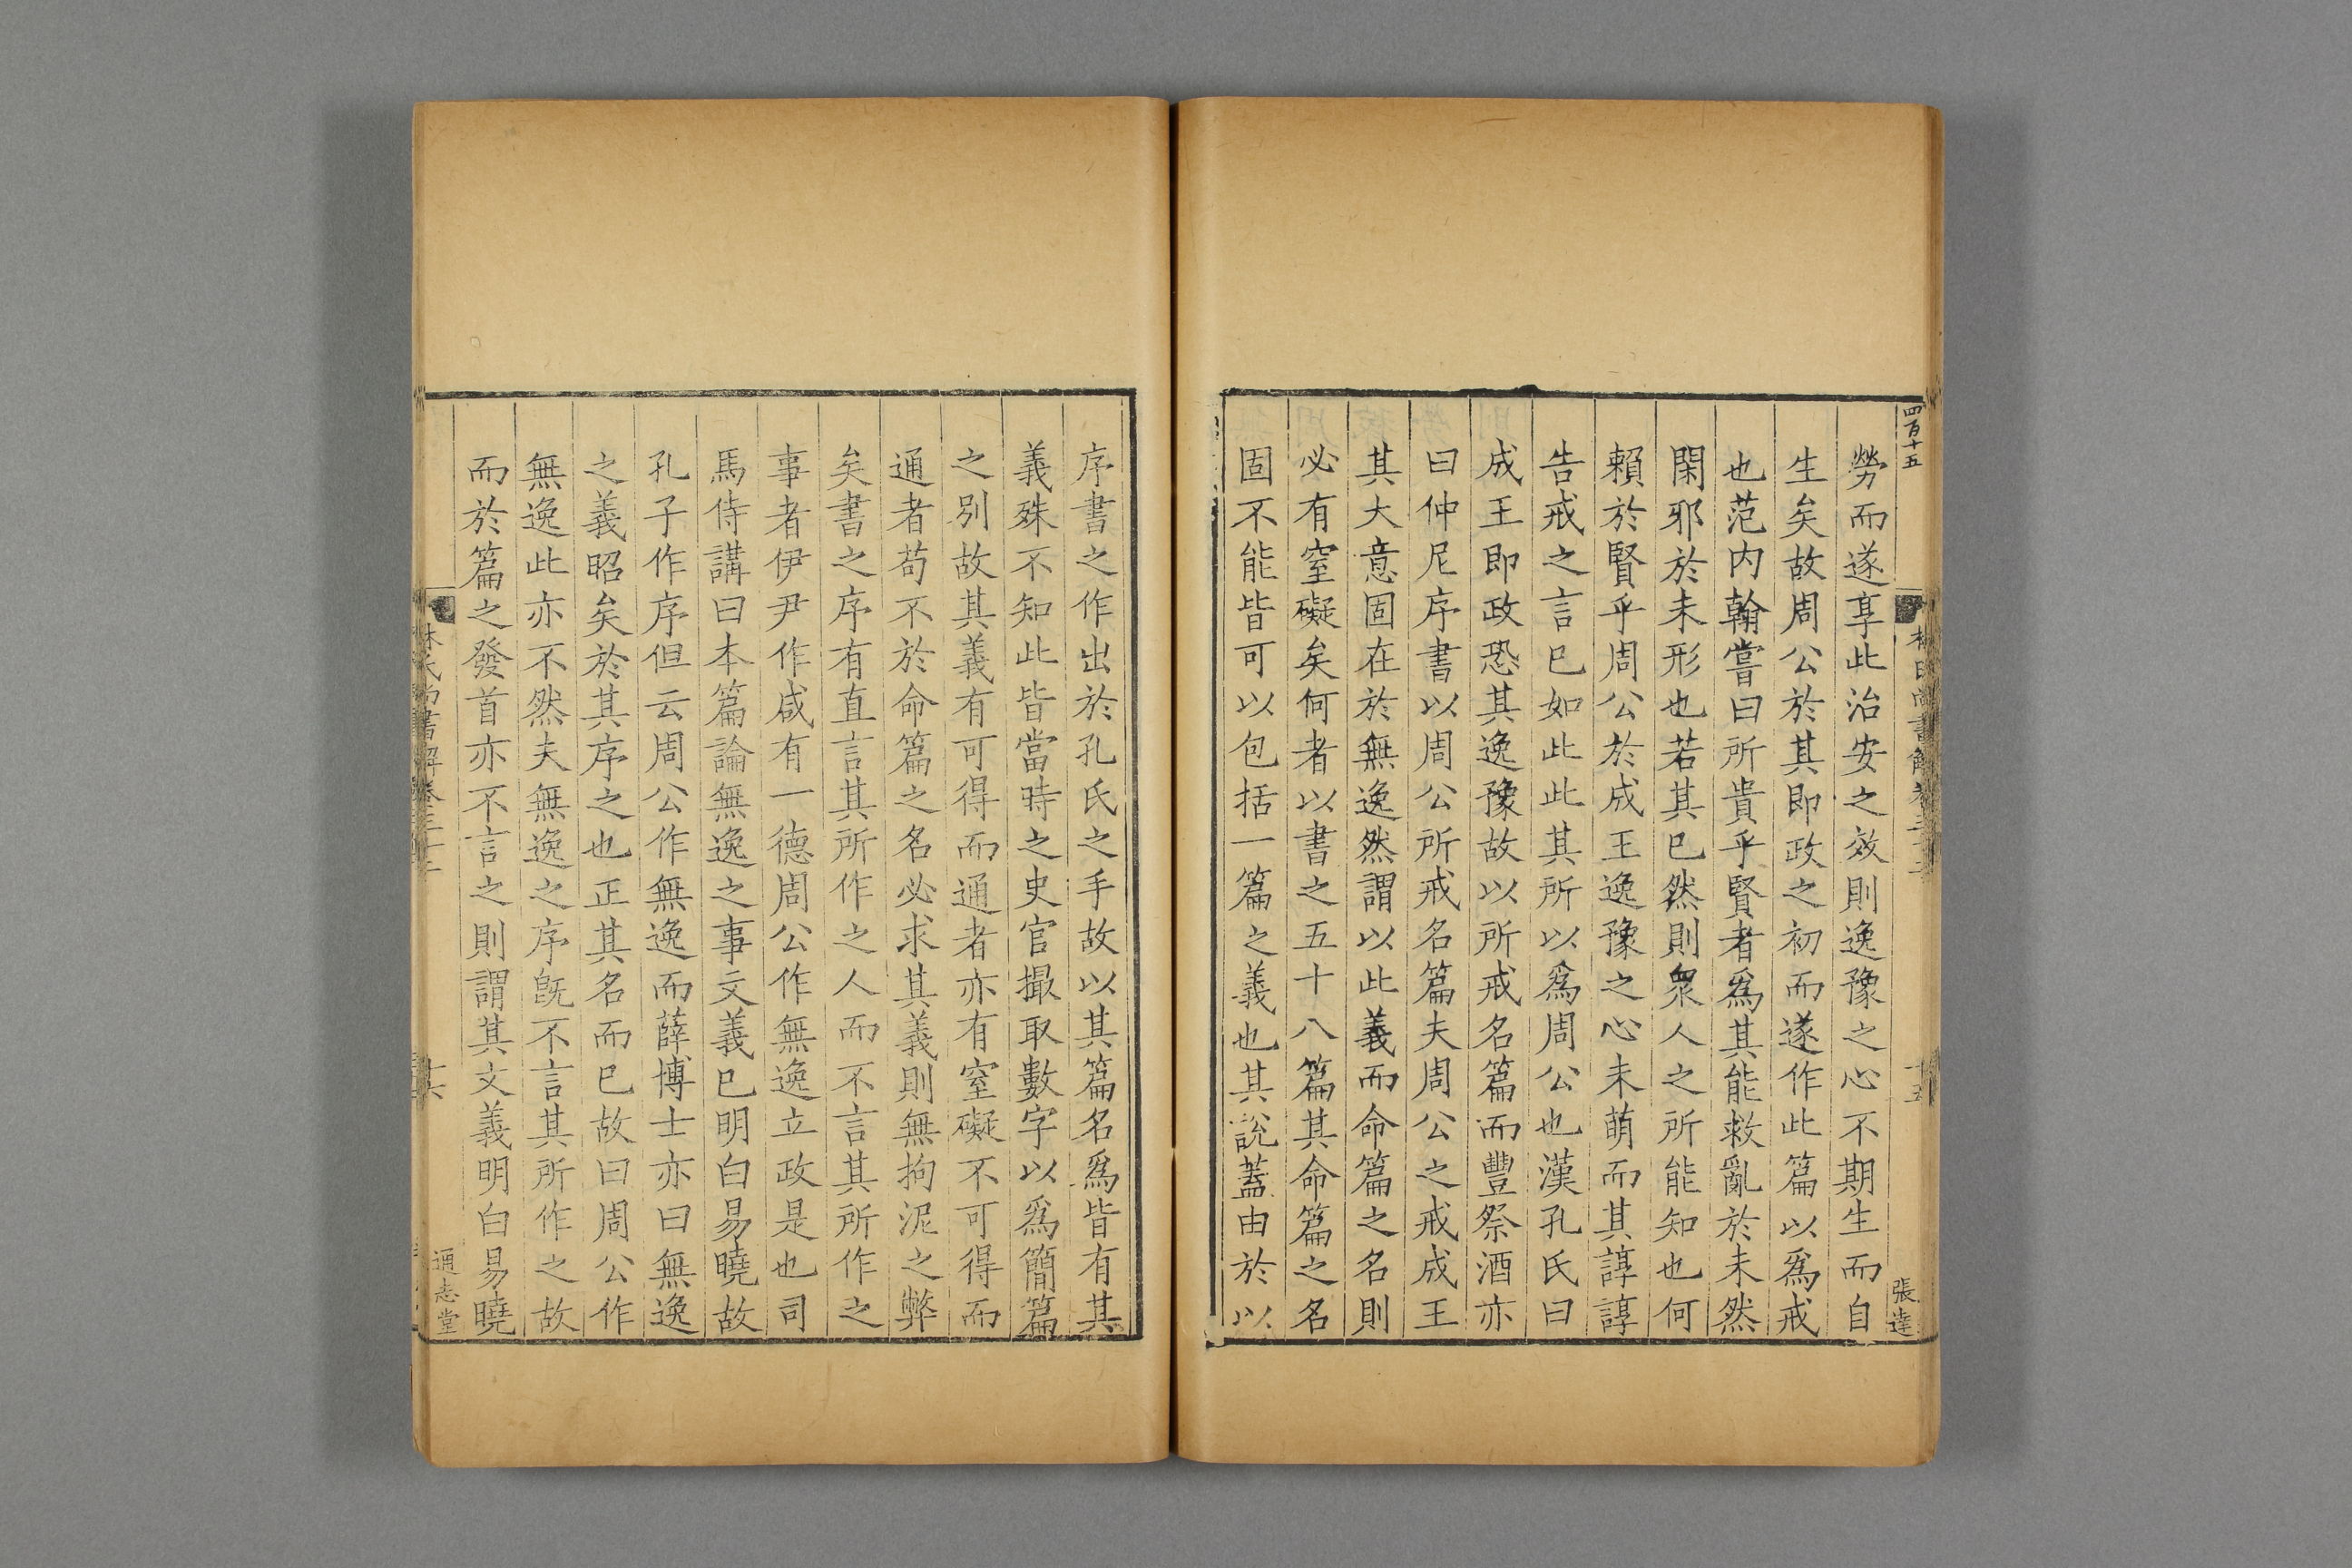 四百十五
張達
勞而遂享此治安之效則逸豫之心不期生而自
生矣故周公於其即政之初而遂作此篇以爲戒
也范内翰嘗曰所貴乎賢者爲其能救亂於未然
閑邪於未形也若其已然則衆人之所能知也何
賴於賢乎周公於成王逸豫之心未萌而其諄諄
告戒之言已如此此其所以爲周公也漢孔氏曰
成王即政恐其逸豫故以所戒名篇而豐祭酒亦
曰仲尼序書以周公所戒名篇夫周公之戒成王
其大意固在於無逸然謂以此義而命篇之名則
必有窒礙矣何者以書之五十八篇其命篇之名
固不能皆可以包括一篇之義也其説蓋由於以
序書之作出於孔氏之手故以其篇名爲皆有其
義殊不知此皆當時之史官撮取數字以爲簡篇
之别故其義有可得而通者亦有窒礙不可得而
通者苟不於命篇之名必求其義則無拘泥之弊
矣書之序有直言其所作之人而不言其所作之
事者伊尹作咸有一德周公作無逸立政是也司
馬侍講曰本篇論無逸之事文義已明白易曉故
孔子作序但云周公作無逸而薛博士亦曰無逸
之義昭矣於其序之也正其名而已故曰周公作
無逸此亦不然夫無逸之序旣不言其所作之故
而於篇之發首亦不言之則謂其文義明白易曉
林氏尚書解卷三十
十六
通志堂